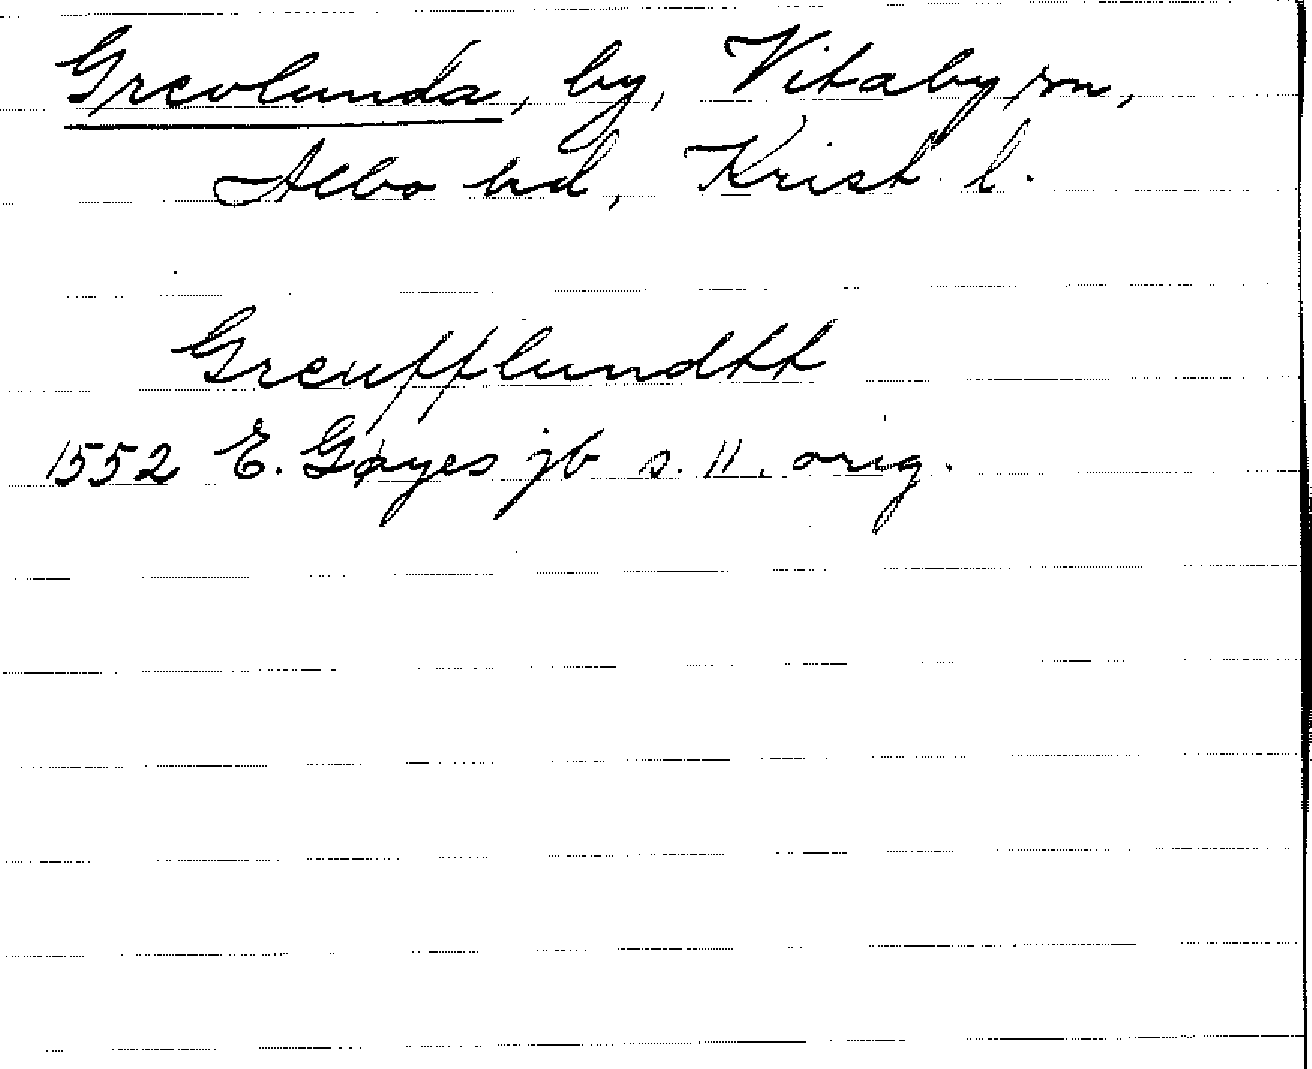 Grevlunda, by, Vitaby sn,
Albo hd, Krist. l.
Greufflundtt
1552 E. Gøyes jb s. 11. orig.